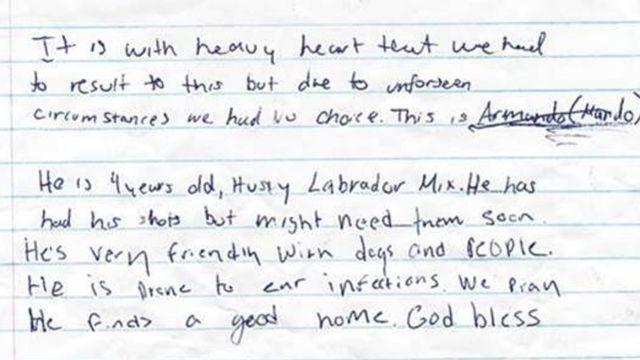 It is with heavy heart that we had
to result to this but due to unforseen
circumstances we had no choice. This is Armando (Mando)
He is 4 years old, Husty Labrador Mix. He has
had his shots but might need them soon.
He's very friendly with dogs and PEOPIE.
He is Prone to ear infections. We pray
He finds a good home. God bless